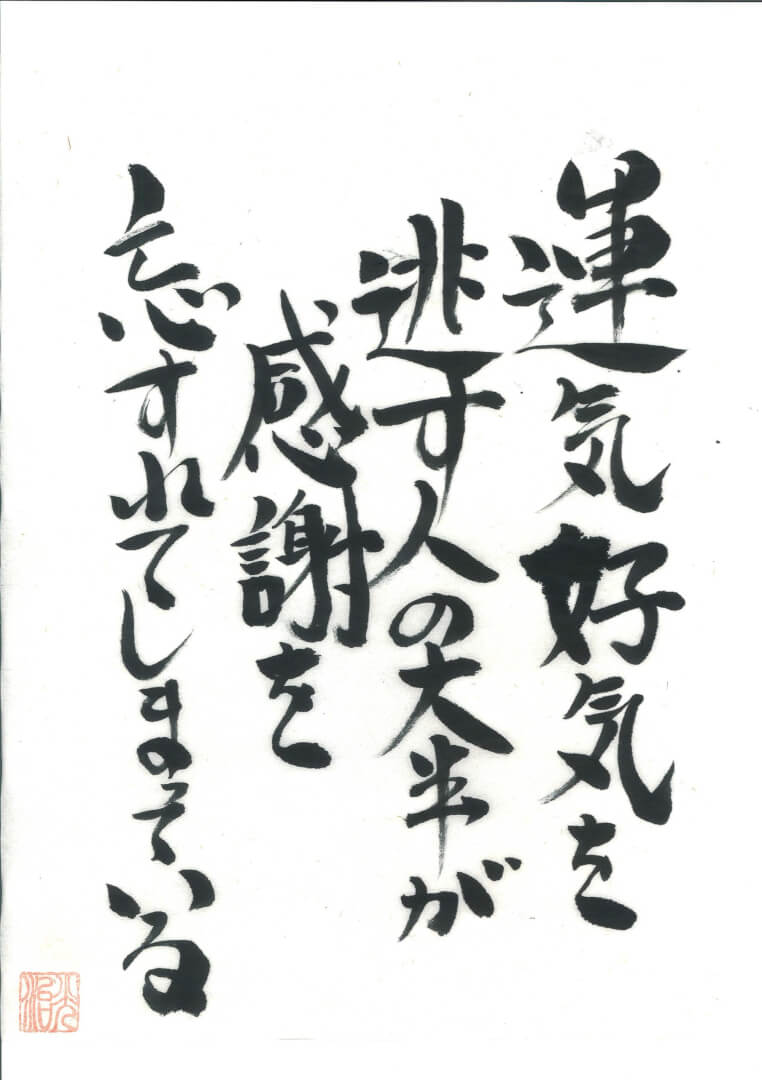 運気好気を
逃す人の大半が
感謝を
忘すれてしまっている